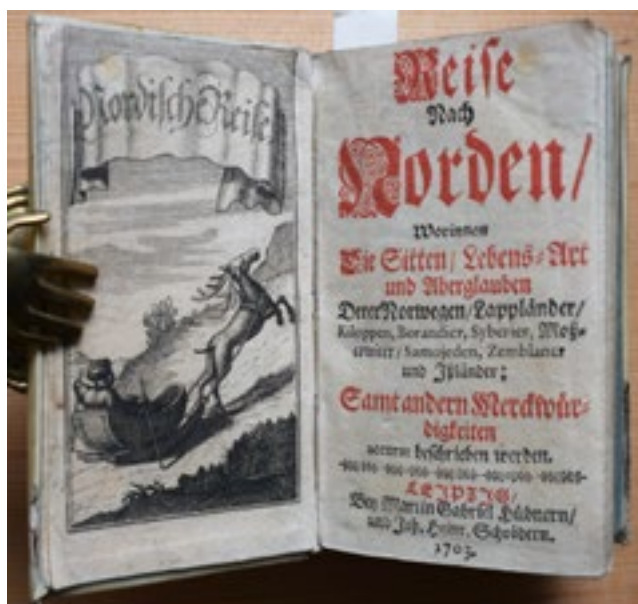 Nordische Reise
Reise
Nach
Norden/
Worinnen
Die Sitten/ Lebens-Art
und Aberglauben
Derer Norwegen/ Lappländer/
Kiloppen, Borandier, Syberier, Moß-
cowiter/ Samojeden, Zemblaner
und Ißländer;
Samt andern Merckwür-
digkeiten
accurat beschrieben werden.
LEIPZIG/
Bey Martin Gabriel Hübnern/
und Joh. Heinr. Schrödern.
1703.